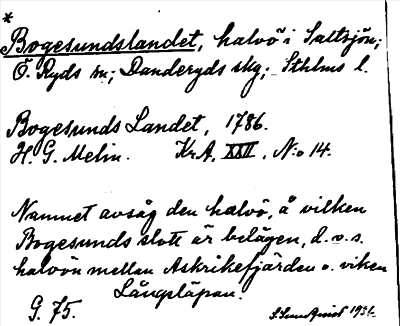 *
Bogesundslandet, halvö i Saltsjön;
Ö. Ryds sn; Danderyds skg; Sthlms l.
Bogesunds Landet, 1786.
H. G. Melin. Kr.A. XXII, N:o 14.
Namnet avsåg den halvö, å vilken
Bogesunds slott är belägen, d.v.s.
halvön mellan Askrikefjärden o. viken
Långtäpan.
G. 75. 1931.